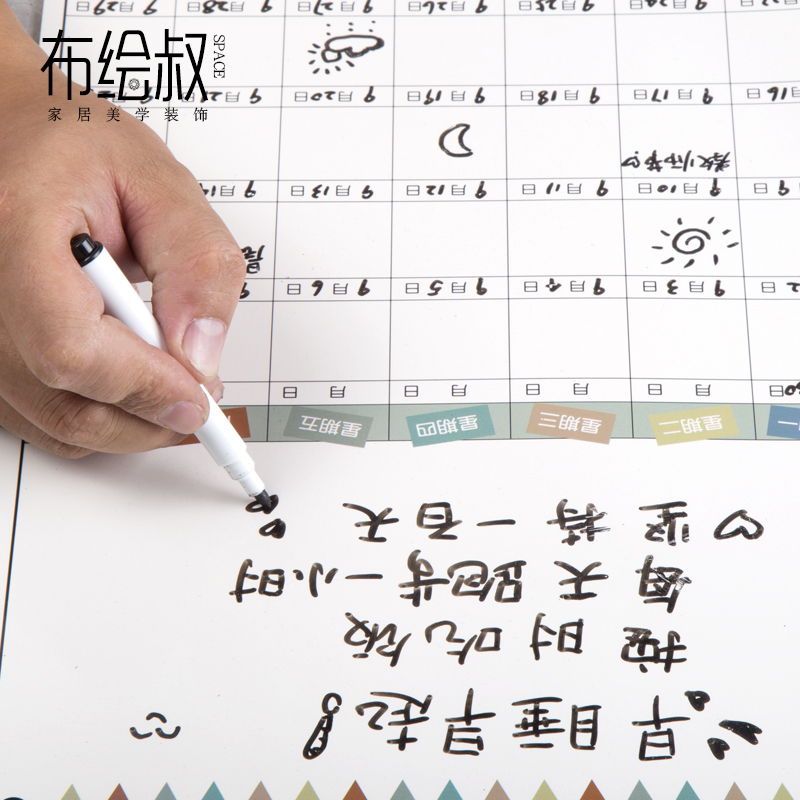 布绘叔
SPACE
家居美学装饰
早睡早起!
按时吃饭
每天跑步一小时
坚持一百天
星期二 星期三 星期四 星期五
月 日 月 日 月 日 月 日
9月3日 9月4日 9月5日 9月6日
9月10日 9月11日 9月12日 9月13日 9月14日
教师节
16日 9月17日 9月18日 9月19日 9月20日 9月21日
9月24日 9月25日 9月26日 9月27日 9月28日 9月29日